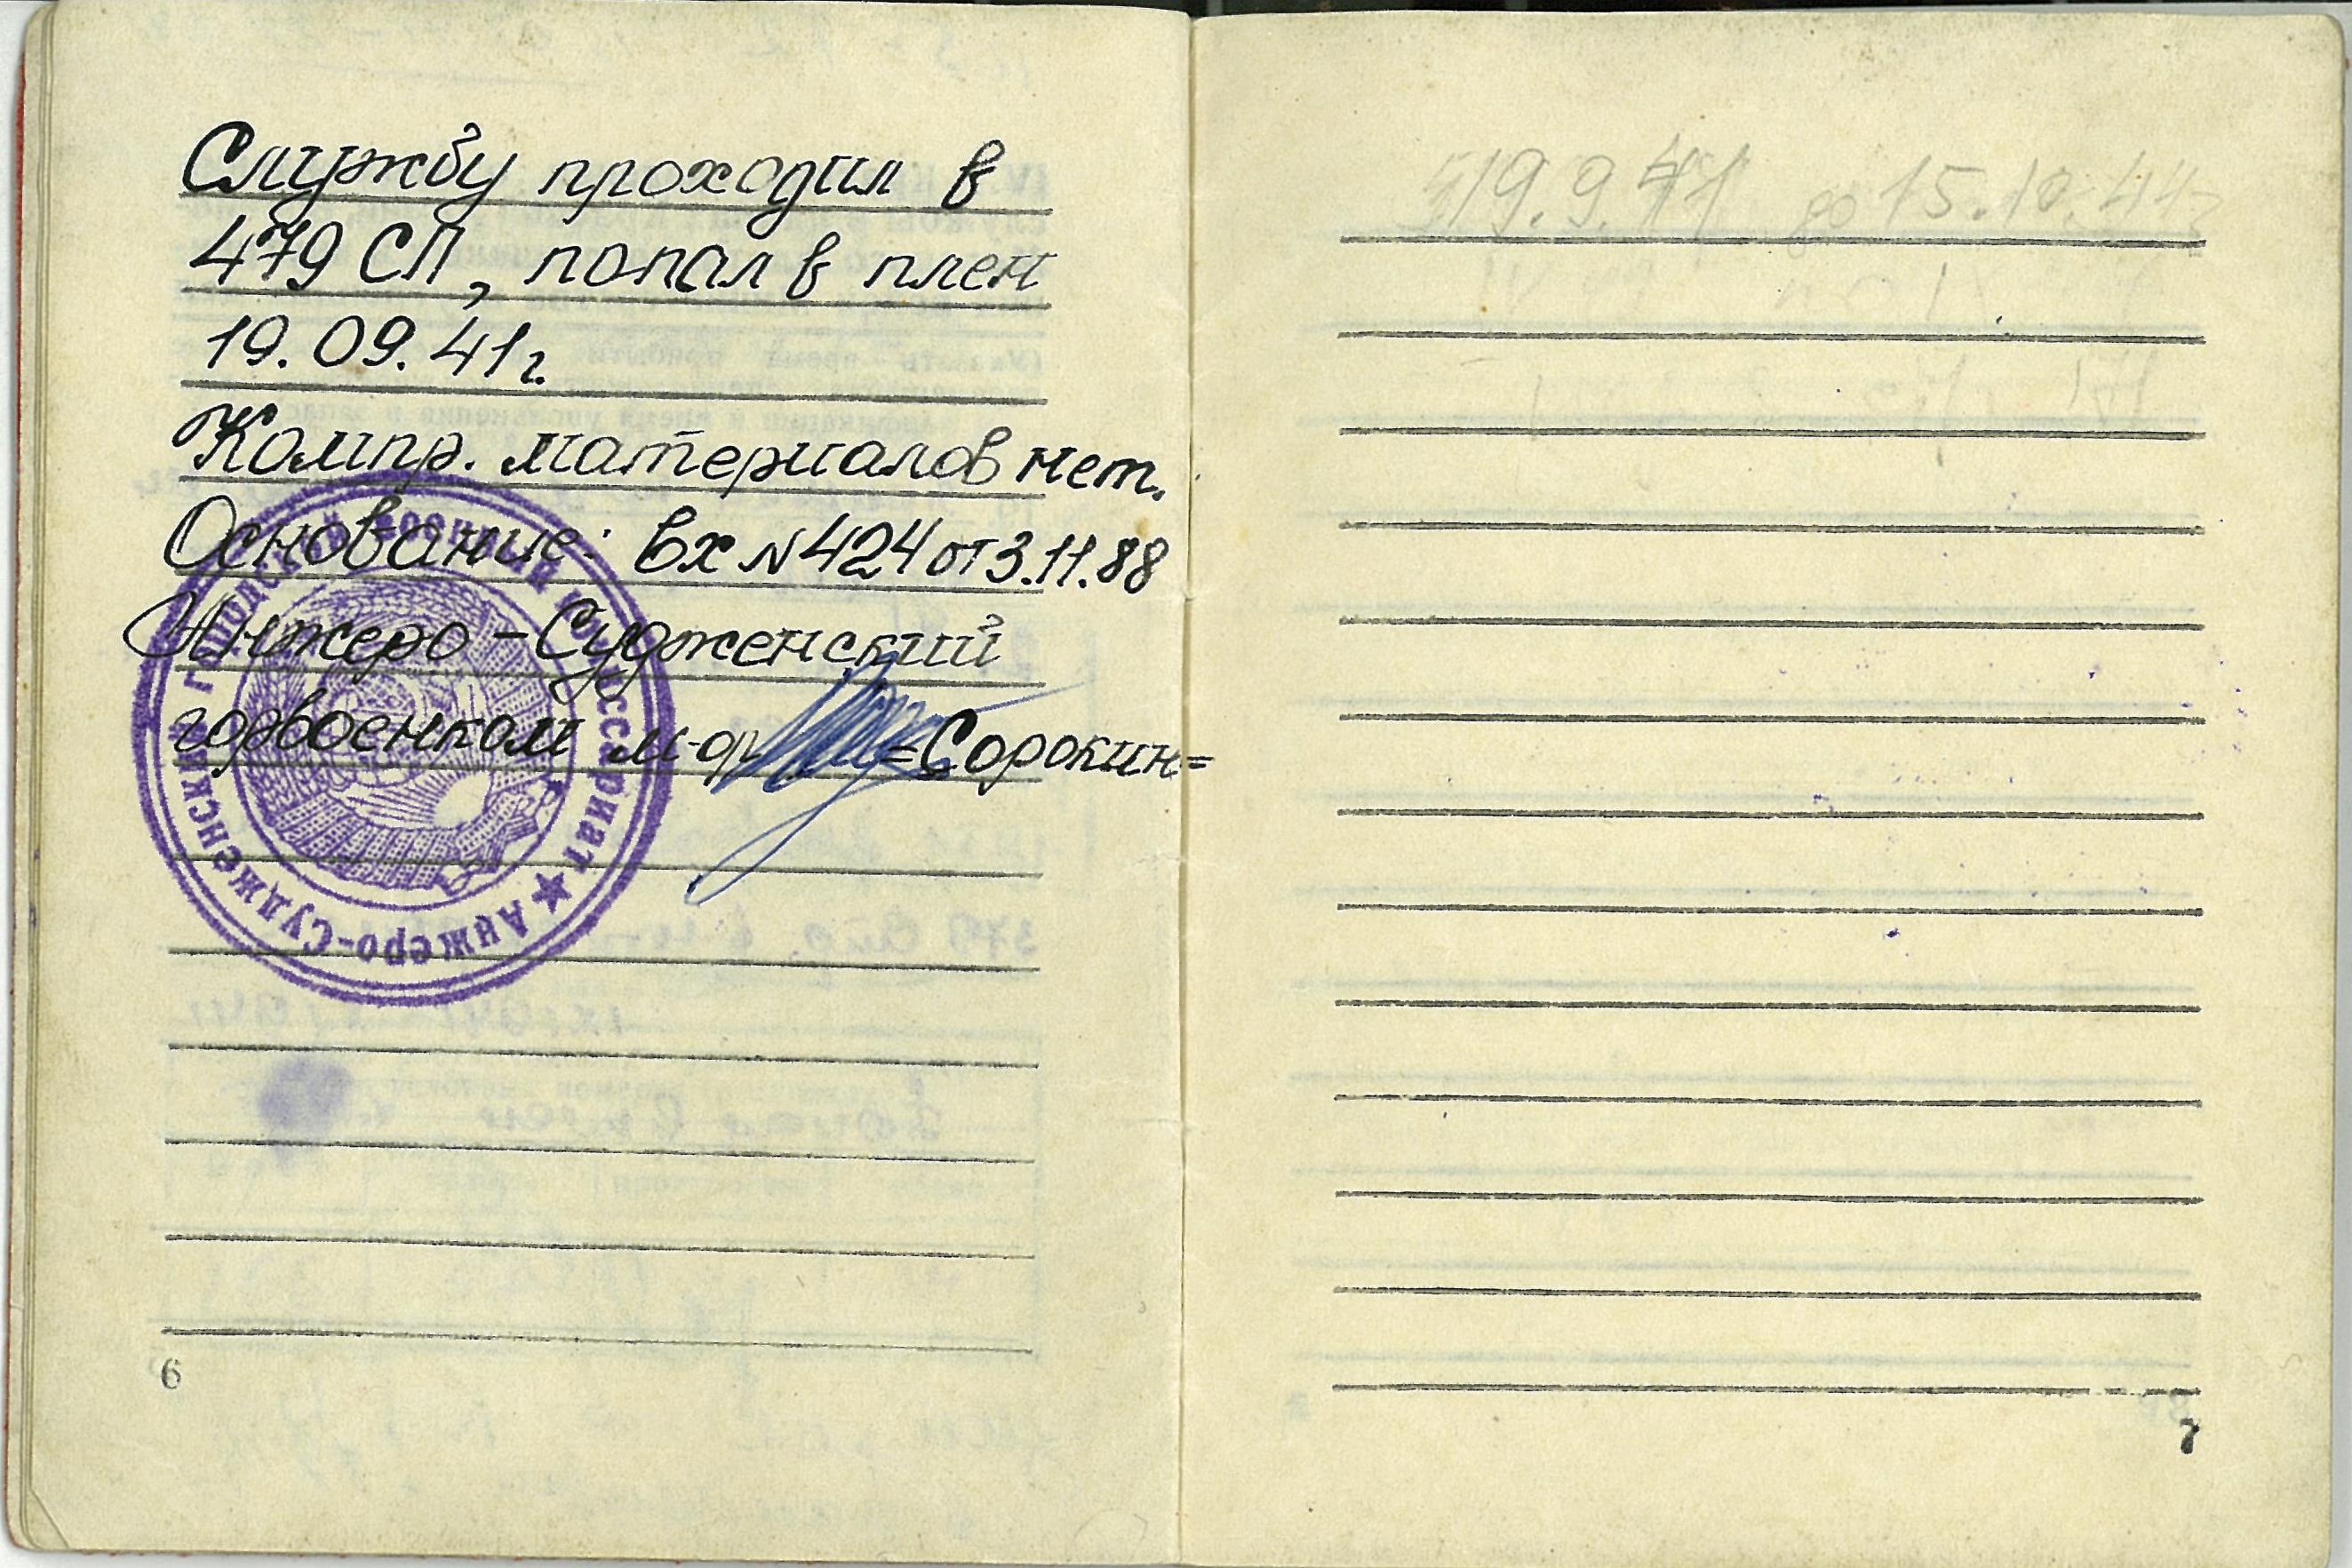 Службу проходил в
479 СП, попал в плен
19.09.41г.
Компр. материалов нет.
Основание: вх N 424 от 3.11.88
Анжеро-Судженский
горвоенком м-р =Сорокин=
Анжеро-Судженский городской военный комиссариат ★
6
19.9.41 до 15.10.44г
7